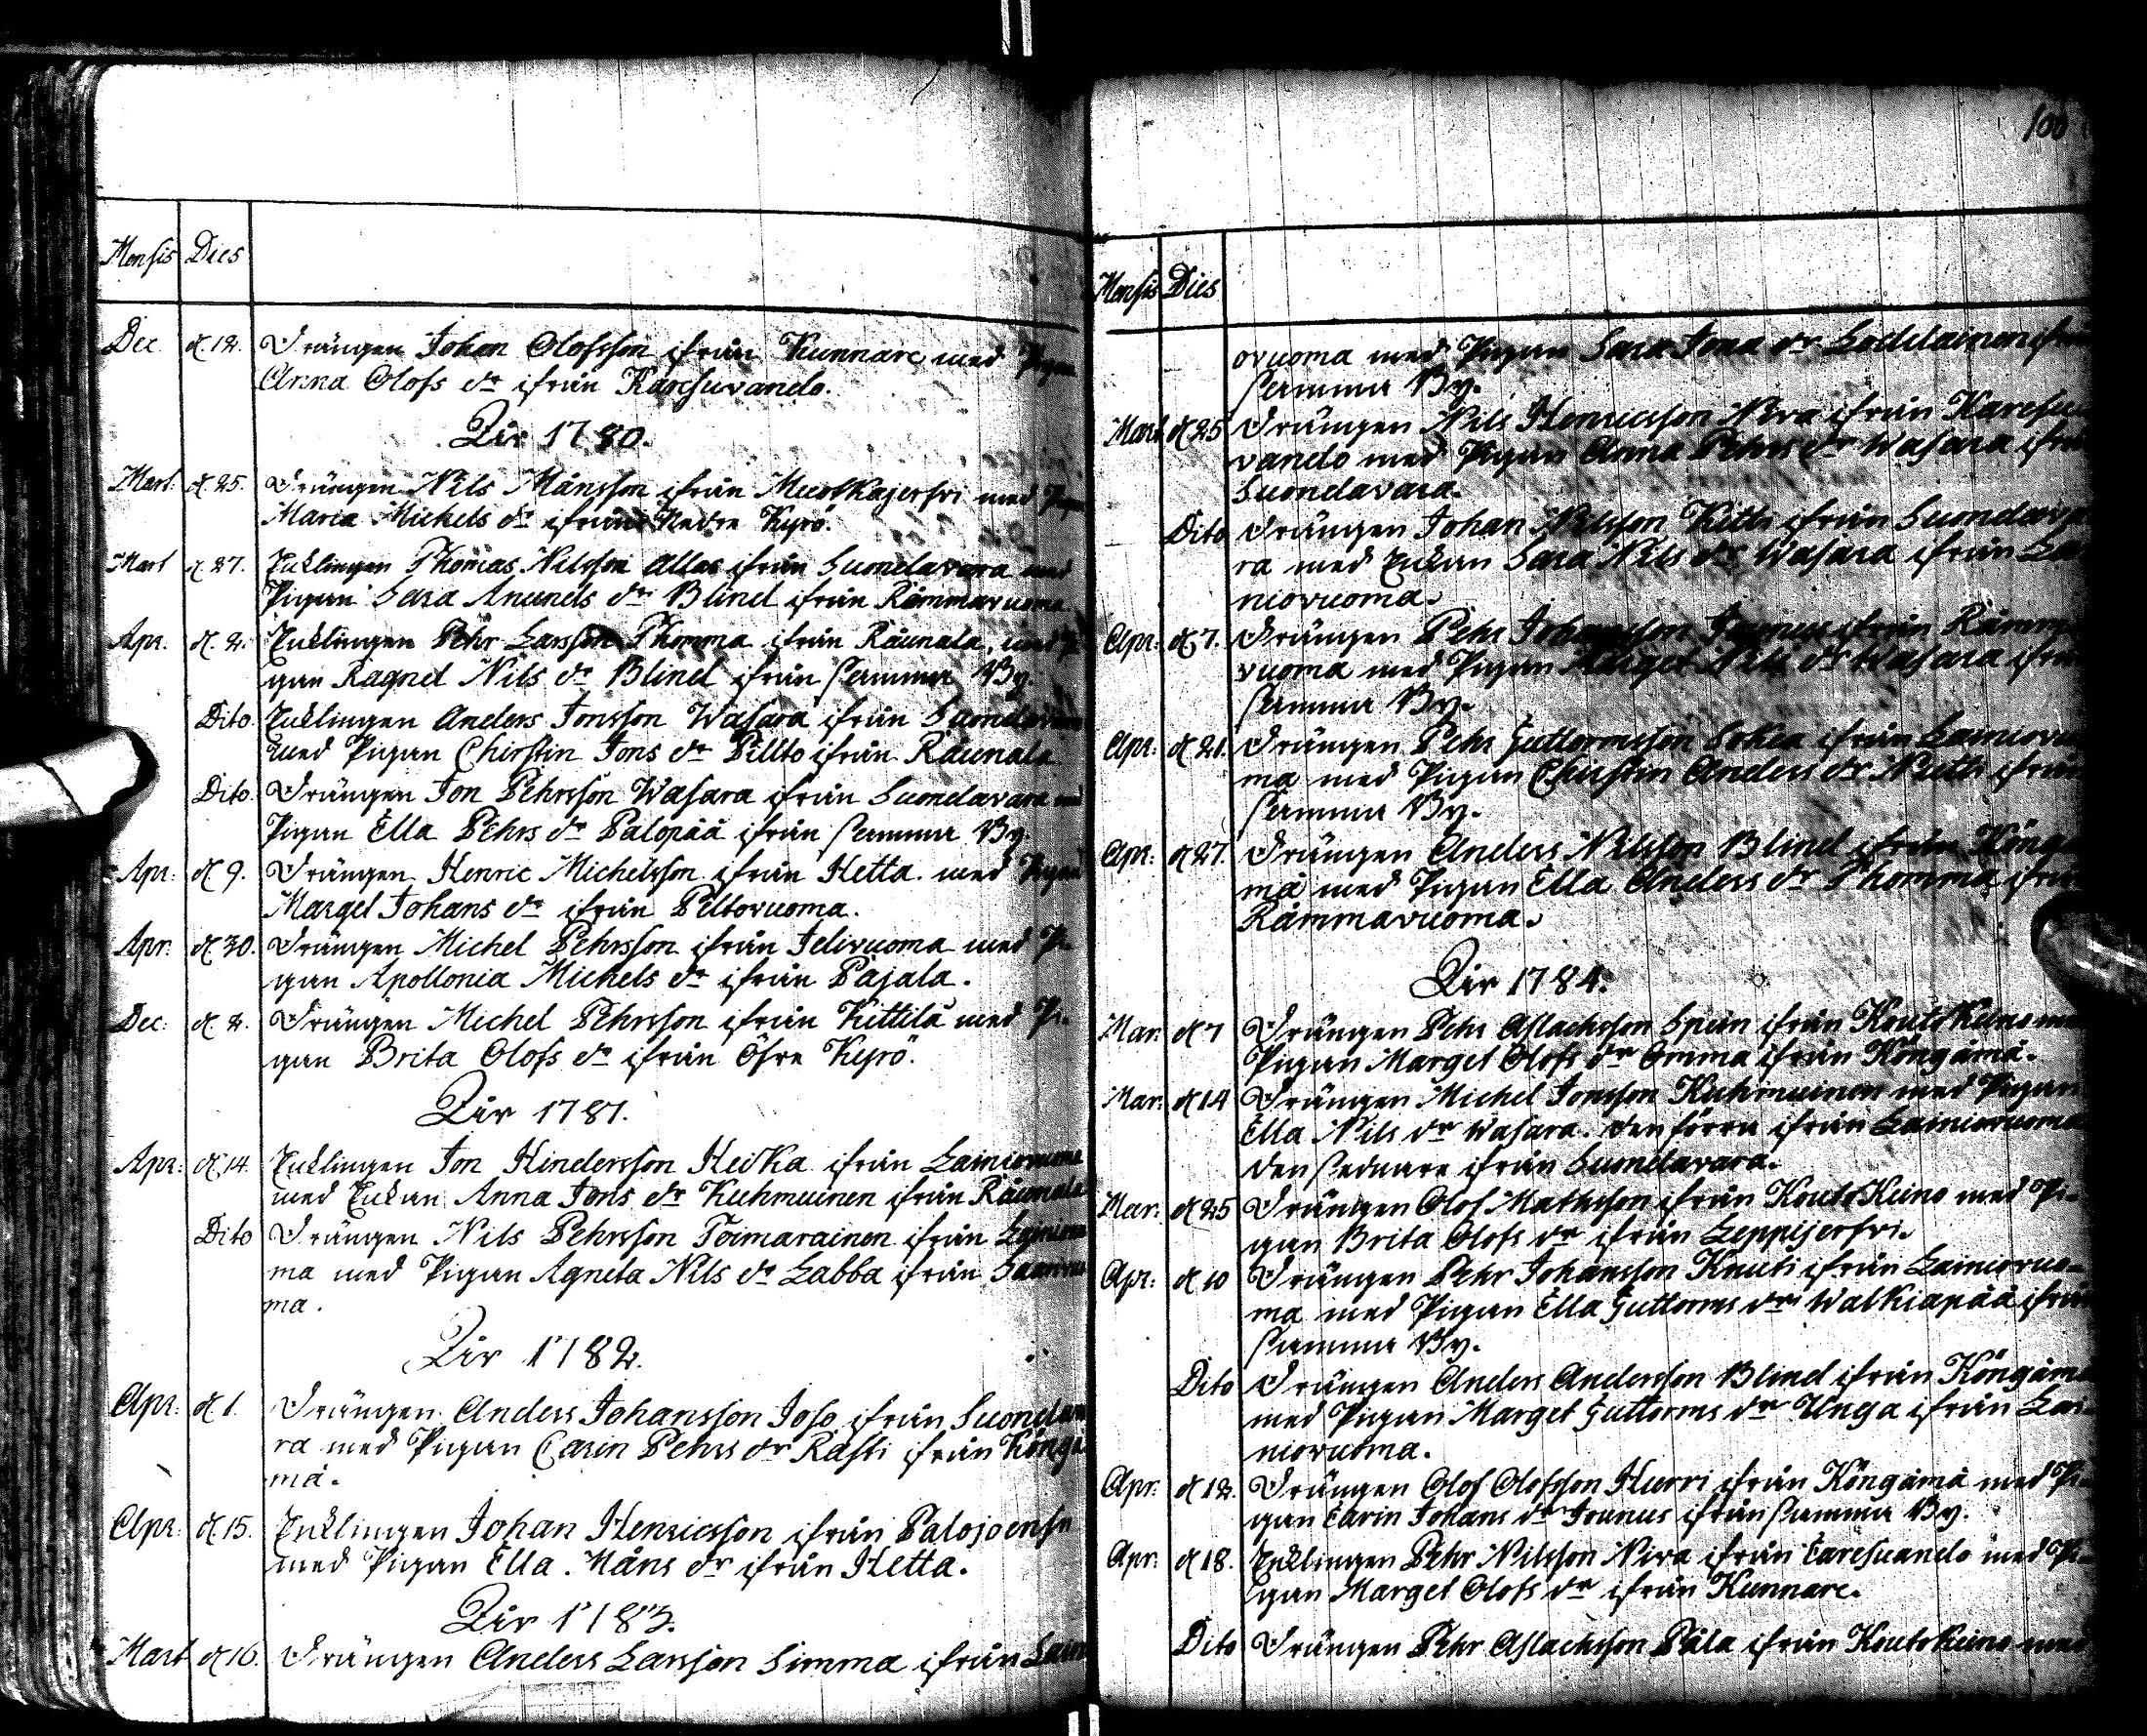 Mensis Dies
Dec. d. 12. Drängen Johan Olofsson ifrån Kunnare med Pigan
Anna Olofs dr ifrån Karesuvando.
Åhr 1780.
Mart: d. 25. Drängen Nils Månsson ifrån Muotkajerfvi med Pigan
Maria Michels dr ifrån Nedre Kyrö.
Mart d. 27. Enklingen Thomas Nilsson Allas ifrån Suondavara med
Pigan Sara Anunds dr Blind ifrån Råmmavuoma
Apr. d. 2. Enklingen Pehr Larsson Thomma ifrån Råunala, med Pi
gan Ragnel Nils dr Blind ifrån samma By.
Dito. Enklingen Anders Jonsson Wasara ifrån Suondavara
med Pigan Chirstin Jons dr Pillto ifrån Råunala
Dito. Drängen Jon Pehrsson Wasara ifrån Suondavara med
Pigan Ella Pehrs dr Palopää ifrån samma By.
Apr: d. 9. Drängen Henric Michelsson ifrån Hetta med Pigan
Marget Johans dr ifrån Peltovuoma.
Apr: d. 30. Drängen Michel Pehrsson ifrån Jelivuoma med Pi-
gan Apollonia Michels dr ifrån Pajala.
Dec: d. 2. Drängen Michel Pehrsson ifrån Kittilä med Pi-
gan Brita Olofs dr ifrån Öfre Kyrö.
Åhr 1781.
Apr: d. 14. Enklingen Jon Hindersson Heika ifrån Lainiovuoma
med Enkan Anna Jons dr Kuhmuinen ifrån Råunala
Dito Drängen Nils Pehrsson Toimarainen ifrån
ma med Pigan Agneta Nils dr Labba ifrån
ma.
Åhr 1782.
Apr: d. 1. Drängen Anders Johansson Joso ifrån Suondava
ra med Pigan Carin Pehrs dr Rasti ifrån Köngä
mä.
Apr: d. 15. Enklingen Johan Henricsson ifrån Palojoensu
med Pigan Ella Måns dr ifrån Hetta.
Åhr 1783.
Mart d. 16. Drängen Anders Larsson Simma ifrån Laini
100
Mensis Dies
ovuoma med Pigan Sara Jona dr ifrån
samma By.
Mart d. 25 Drängen Nils Henricsson ifrån Karesu
vando med Pigan Anna Pehrs dr Wasara ifrån
Suondavara.
Dito Drängen Johan Nilsson ifrån Suondava
ra med Enkan Sara Nils dr Wasara ifrån Lai
niovuoma.
Apr: d. 7. Drängen Pehr Johansson ifrån Råmma
vuoma med Pigan Marget Nils dr Wasara ifrån
samma By.
Apr: d. 21. Drängen Pehr Guttormsson ifrån Lainiovuo
ma med Pigan Chirstin Anders dr ifrån
samma By.
Apr: d. 27. Drängen Anders Nilsson Blind ifrån Köngä
mä med Pigan Ella Anders dr Thomma ifrån
Råmmavuoma.
Åhr 1784.
Mar: d. 7 Drängen Pehr Aslachsson Spein ifrån Koutokeino med
Pigan Marget Olofs dr Omma ifrån Köngämä.
Mar: d. 14 Drängen Michel Jonsson Kuhmuinen med Pigan
Ella Nils dr Wasara. den förra ifrån Lainiovuoma
den sednare ifrån Suondavara.
Mar: d. 25 Drängen Olof Mathsson ifrån Koutokeino med Pi-
gan Brita Olofs dr ifrån Leppijerfvi.
Apr: d. 10 Drängen Pehr Johansson Knuti ifrån Lainiovuo-
ma med Pigan Ella Guttorms dr Walkiapää ifrån
samma By.
Dito Drängen Anders Andersson Blind ifrån Köngämä
med Pigan Marget Guttorms dr Unga ifrån Lai-
niovuoma.
Apr: d. 12. Drängen Olof Olofsson Hurri ifrån Köngämä med Pi-
gan Carin Johans dr Jounus ifrån samma By.
Apr: d. 18. Enklingen Pehr Nilsson Niva ifrån Caresuando med Pi-
gan Marget Olofs dr ifrån Kunnare.
Dito Drängen Pehr Aslachsson Påla ifrån Koutokeino med